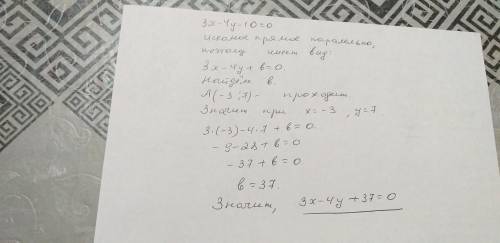 3x-4y-10=0
искомое прямое паралельно,
поэтому имеет вид:
3x-4y+в=0.
Найдём в.
А(-3;7)- проходит
Значит при x=-3, y=7
3·(-3)-4·7+в=0.
-9-28+в=0
-37+в=0
в=37.
Значит, 3x-4y+37=0